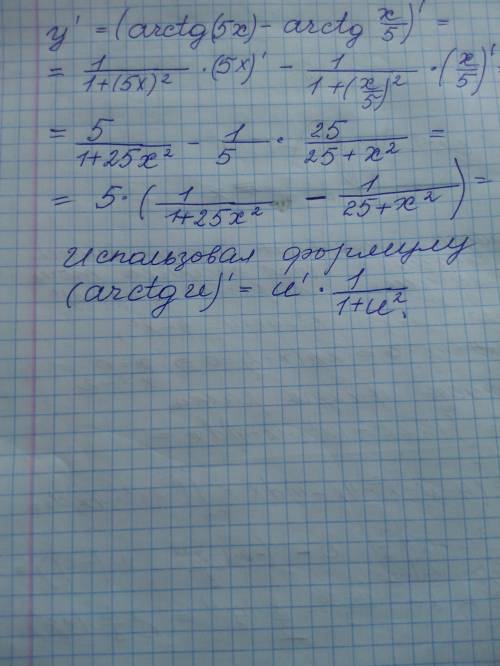 y' = (arctg(5x) - arctg x/5)' =
= 1/(1+(5x)²) · (5x)' - 1/(1+(x/5)²) · (x/5)'
= 5/(1+25x²) - 1/5 · 25/(25+x²) =
= 5·(1/(1+25x²) - 1/(25+x²)) =
Использовал формулу
(arctg u)' = u' · 1/(1+u²).